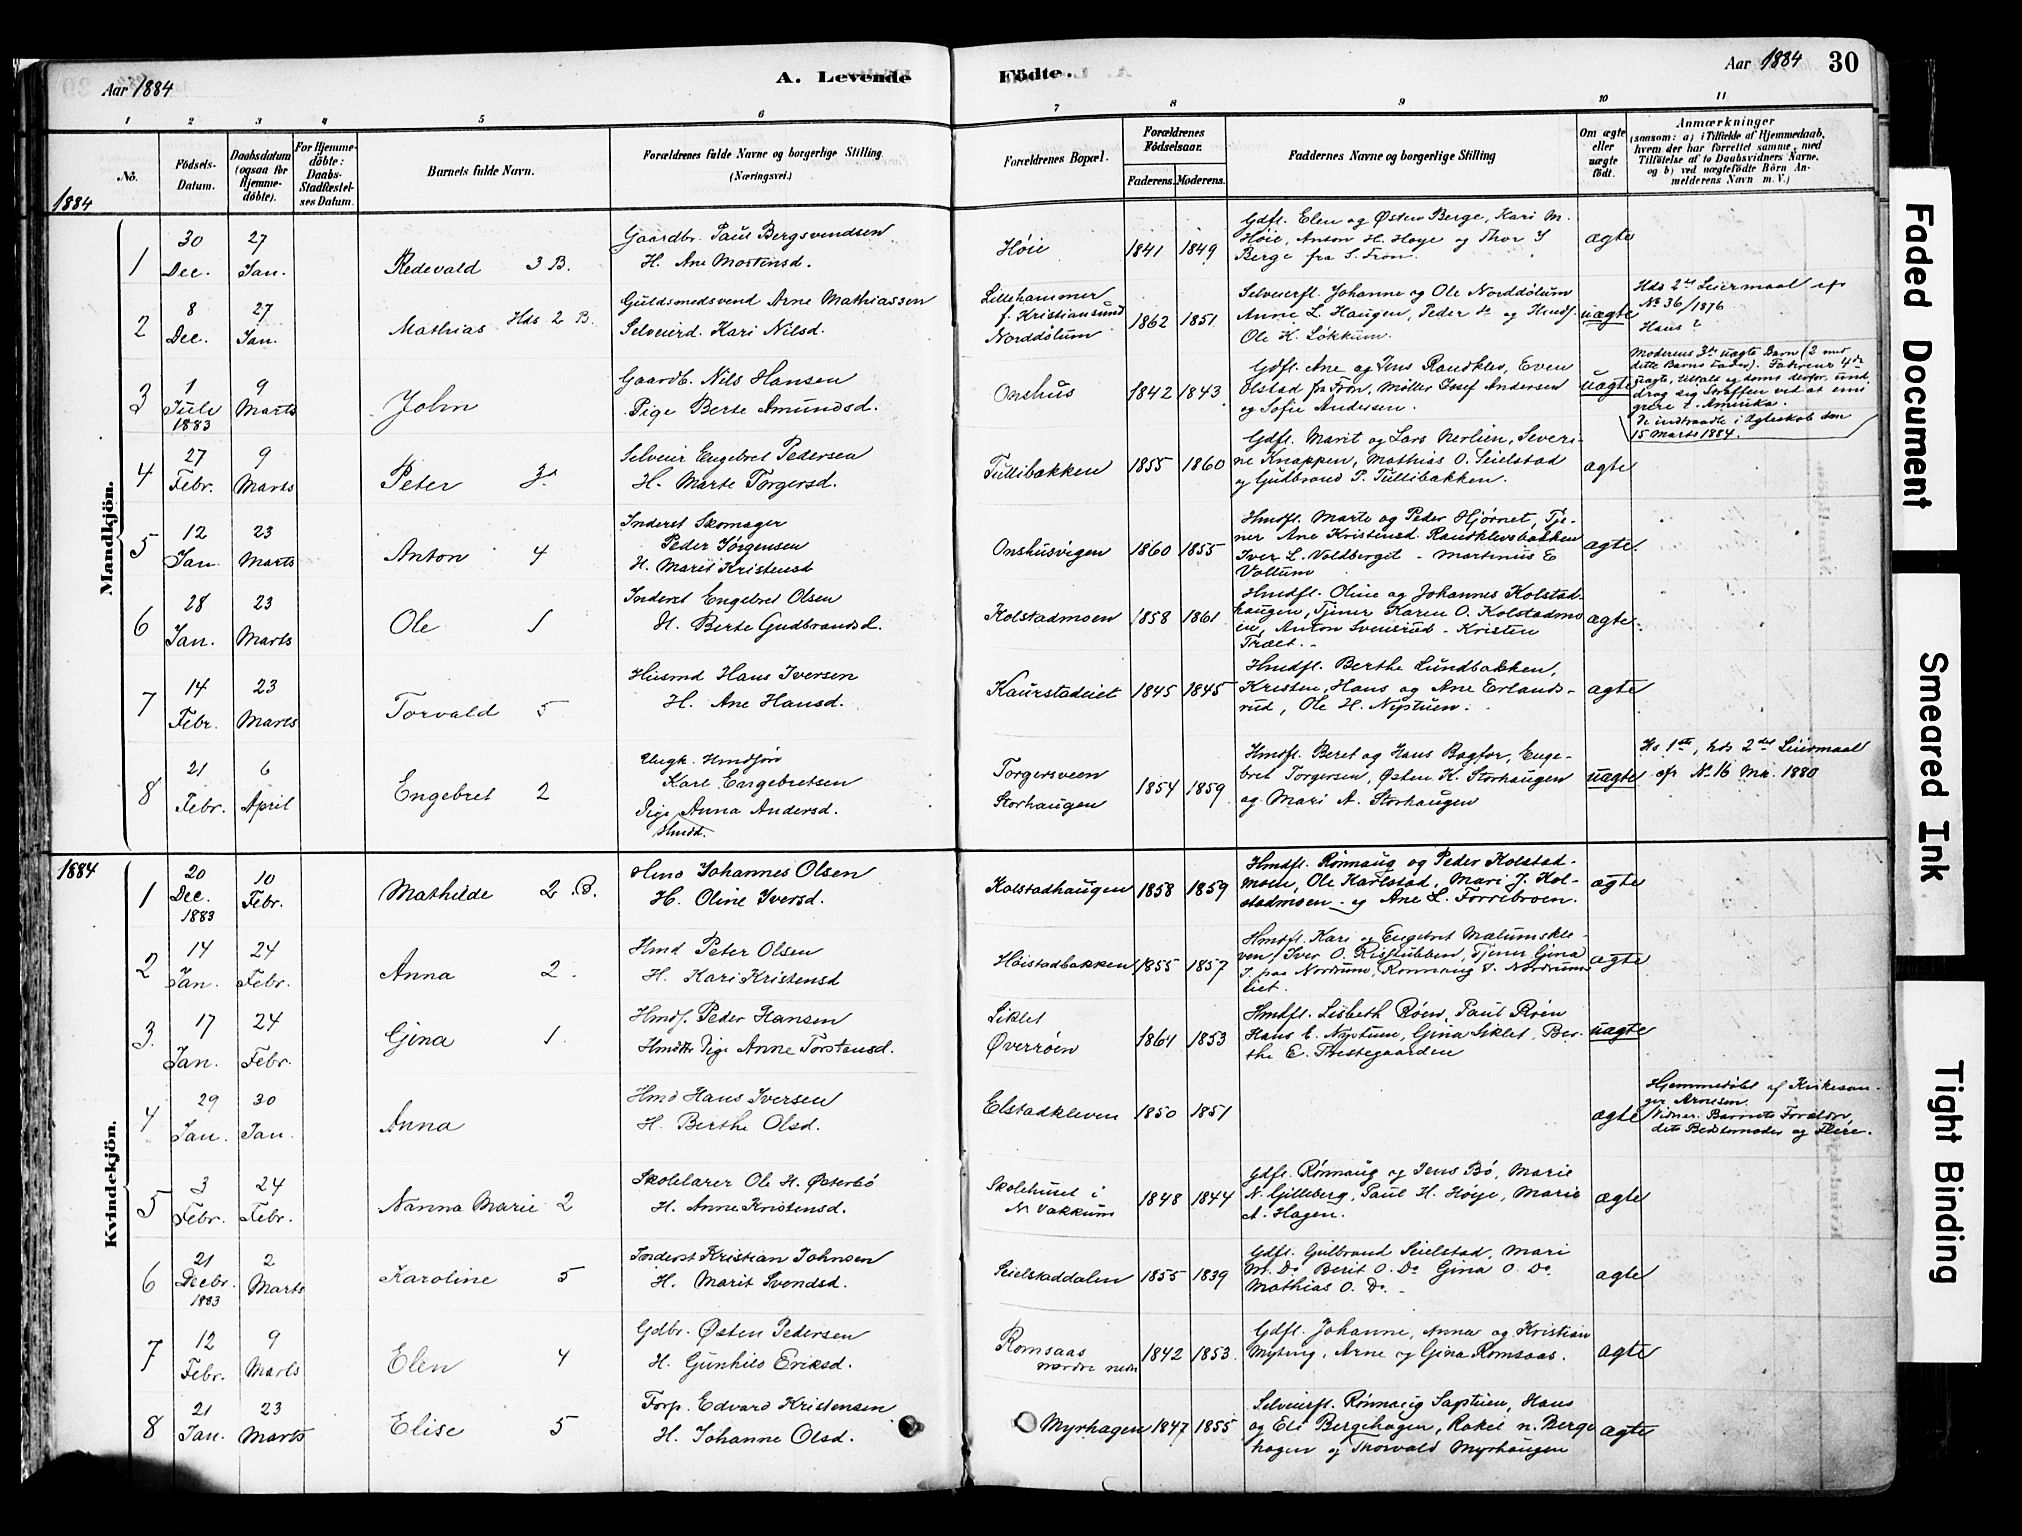 Aar 1884
A. Levende Födte.
Aar 1884 30
1 2 3 4 5 6 7 8 9 10 11
No.
Födsels-Datum.
Daabsdatum (ogsaa for Hjemme-döbte).
For Hjemme-döbte: Daabs-Stadfæstel-ses Datum.
Barnets fulde Navn.
Forældrenes fulde Navne og borgerlige Stilling (Næringsvei.)
Forældrenes Bopæl.
Forældrenes Födselsaar.
Faderens. Moderens.
Faddernes Navne og borgerlige Stilling
Om ægte eller uægte födt.
Anmærkninger
(saasom: a) i Tilfælde af Hjemmedaab, hvem der har forrettet samme, med Tilföielse af to Daabsvidners Navne, og b) ved uægtefödte Börn An-melderens Navn m. V.)
1884
Mandkjön.
1 30 Dec. 27 Jan. Redevald 3 B.
Gaardbr. Paul Bergsvendsen
H. Ane Mortensd.
Høie 1841 1849
Gdfl. Elen og Østen Berge, Kari M.
Høie, Anton H. Høye og Thor S
Berge fra S. Fron.
ægte
2 8 Dec. 27 Jan. Mathias Hds 2 B.
Guldsmedsvend Arne Mathiassen
Selveierd. Kari Nilsd.
Lillehammer
f. Kristiansund
Norddølum
1862 1851
Selveierfl. Johanne og Ole Norddølum
Anne L. Haugen, Peder do og Hmdf.
Ole K. Løkkum.
uægte
Hds 2det Leiermaal cfr
No 36/1876
Hans ?
3 1 Juli 1883 9 Marts John
Gaardb. Nils Hansen
Pige Berte Amundsd.
Onshus 1842 1843
Gdfl. Ane og Jens Randklev, Even
Olstad fr Fron, Møller Josef Andersen
og Sofie Andersen.
uægte
Moderens 3de uægte Barn (2 med
dette Barns Fader). Faderens 4de
uægte, tiltalt og dømt derfor, und
drog sig Straffen ved at emi
grere t. Amerika.
De indtraadte i Ægteskab den
15 Marts 1884.
4 27 Febr. 9 Marts Peter 3.
Selveier Engebret Pedersen
H. Marte Torgersd.
Tullibakken 1855 1860
Gdfl. Marit og Lars Nerlien, Severi-
ne Knappen, Mathias O. Seielstad
og Gudbrand P. Tullibakken.
ægte
5 12 Jan. 23 Marts Anton 4
Inderst Skomager
Peder Jørgensen
H. Marit Kristensd
Onshusvigen 1860 1855
Hmdfl. Marte og Peder Hjørnet, Tje-
ner Ane Kristensd. Randklevsbakken
Iver L. Voldberget - Martinius E
Vollum
ægte.
6 28 Jan. 23 Marts Ole 1
Inderst Engebret Olsen
H. Berte Gudbrandsd.
Kolstadmoen 1858 1861
Hmdfl. Oline og Johannes Kolstad-
haugen, Tjener Karen O. Kolstadmo
en, Anton Svensrud - Kristen
Træet. -
ægte.
7 14 Febr. 23 Marts Torvald 5
Husmd Hans Iversen
H. Ane Hansd.
Kaurstadeiet 1845 1845
Hmdfl. Berthe Lundbakken,
Kristen, Hans og Ane Erlands-
rud, Ole H. Nystuen.
ægte
8 21 Febr. 6 April Engebret 2
Ungk. Hmdsøn
Karl Engebretsen
Pige Anna Andersd.
Hmdd.
Torgersveen
Storhaugen
1854 1859
Hmdfl. Beret og Hans Bagfor, Enge-
bret Torgersen, Østen K. Storhaugen
og Mari A. Storhaugen
uægte
Hs 1ste, hds 2det Leiermaal
cfr No 16 Mk. 1880
1884
Kvindekjön.
1 20 Dec. 1883 10 Febr. Mathilde 2 B.
Hmd Johannes Olsen
H. Oline Iversd.
Kolstadhaugen 1858 1859
Hmdfl. Rønnaug og Peder Kolstad-
moen, Ole Karlstad, Mari J. Kol-
stadmoen og Ane L. Forrebroen.
ægte
2 14 Jan. 24 Febr. Anna 2.
Hmd Peter Olsen
H. Kari Kristensd
Høistadbakken 1855 1857
Hmdfl. Kari og Engebret Mælumskle-
ven, Iver O. Risstubben, Tjener Gina
J. paa Nordrum, Rønnaug J. Nordrums
liet.
ægte
3. 17 Jan. 24 Febr. Gina 1.
Hmdf. Peder Hansen
Hmdttr Pige Anne Torstensd.
Siklet
Øverrøen
1861 1853
Hmdfl. Lisbeth Røen, Paul Røen
Hans E. Nystuen, Gina Siklet, Ber-
the E. Prestegaarden
uægte
4 29 Jan. 30 Jan. Anna
Hmd Hans Iversen
H. Berthe Olsd.
Elstadkleven 1850 1851
ægte
Hjemmedøbt af Kirkesan-
ger Arnesen.
Vidner: Barnets Forældre,
dets Bedstemoder og Flere.
5 3 Febr. 24 Febr. Nanna Marie 2
Skolelærer Ole H. Østerbø
H. Anne Kristensd.
Skolehuset i
N Vakkum
1848 1844
Gdfl. Rønnaug og Jens Bø, Marie
N. Gilleberg, Paul H. Høye, Marie
A. Hagen.
ægte
6 21 Decbr. 1883 2 Marts Karoline 5
Inderst Kristian Johnsen
H. Marit Svendsd.
Seielstaddalen 1855 1839
Gdfl. Gulbrand Seielstad, Mari
M. Do Berit O. Do Gina O. Do
Mathias O. Do. -
ægte
7 12 Febr. 9 Marts Elen 4
Gdbr. Østen Pedersen
H. Gunhild Eriksd.
Romsaas
nordre nedr
1842 1853.
Gdfl. Johanne, Anna og Kristian
Myting, Arne og Gina Romsaas.
ægte
8 21 Jan. 23 Marts Elise 5
Forp. Edvard Kristensen
H. Johanne Olsd.
Myrhagen 1847 1855
Selveierfl. Rønnaug Saptuen, Hans
og Eli Bergehagen, Rakel n. Berge
hagen og Thorvald Myrhaugen
ægte
Faded Document
Smeared Ink
Tight Binding